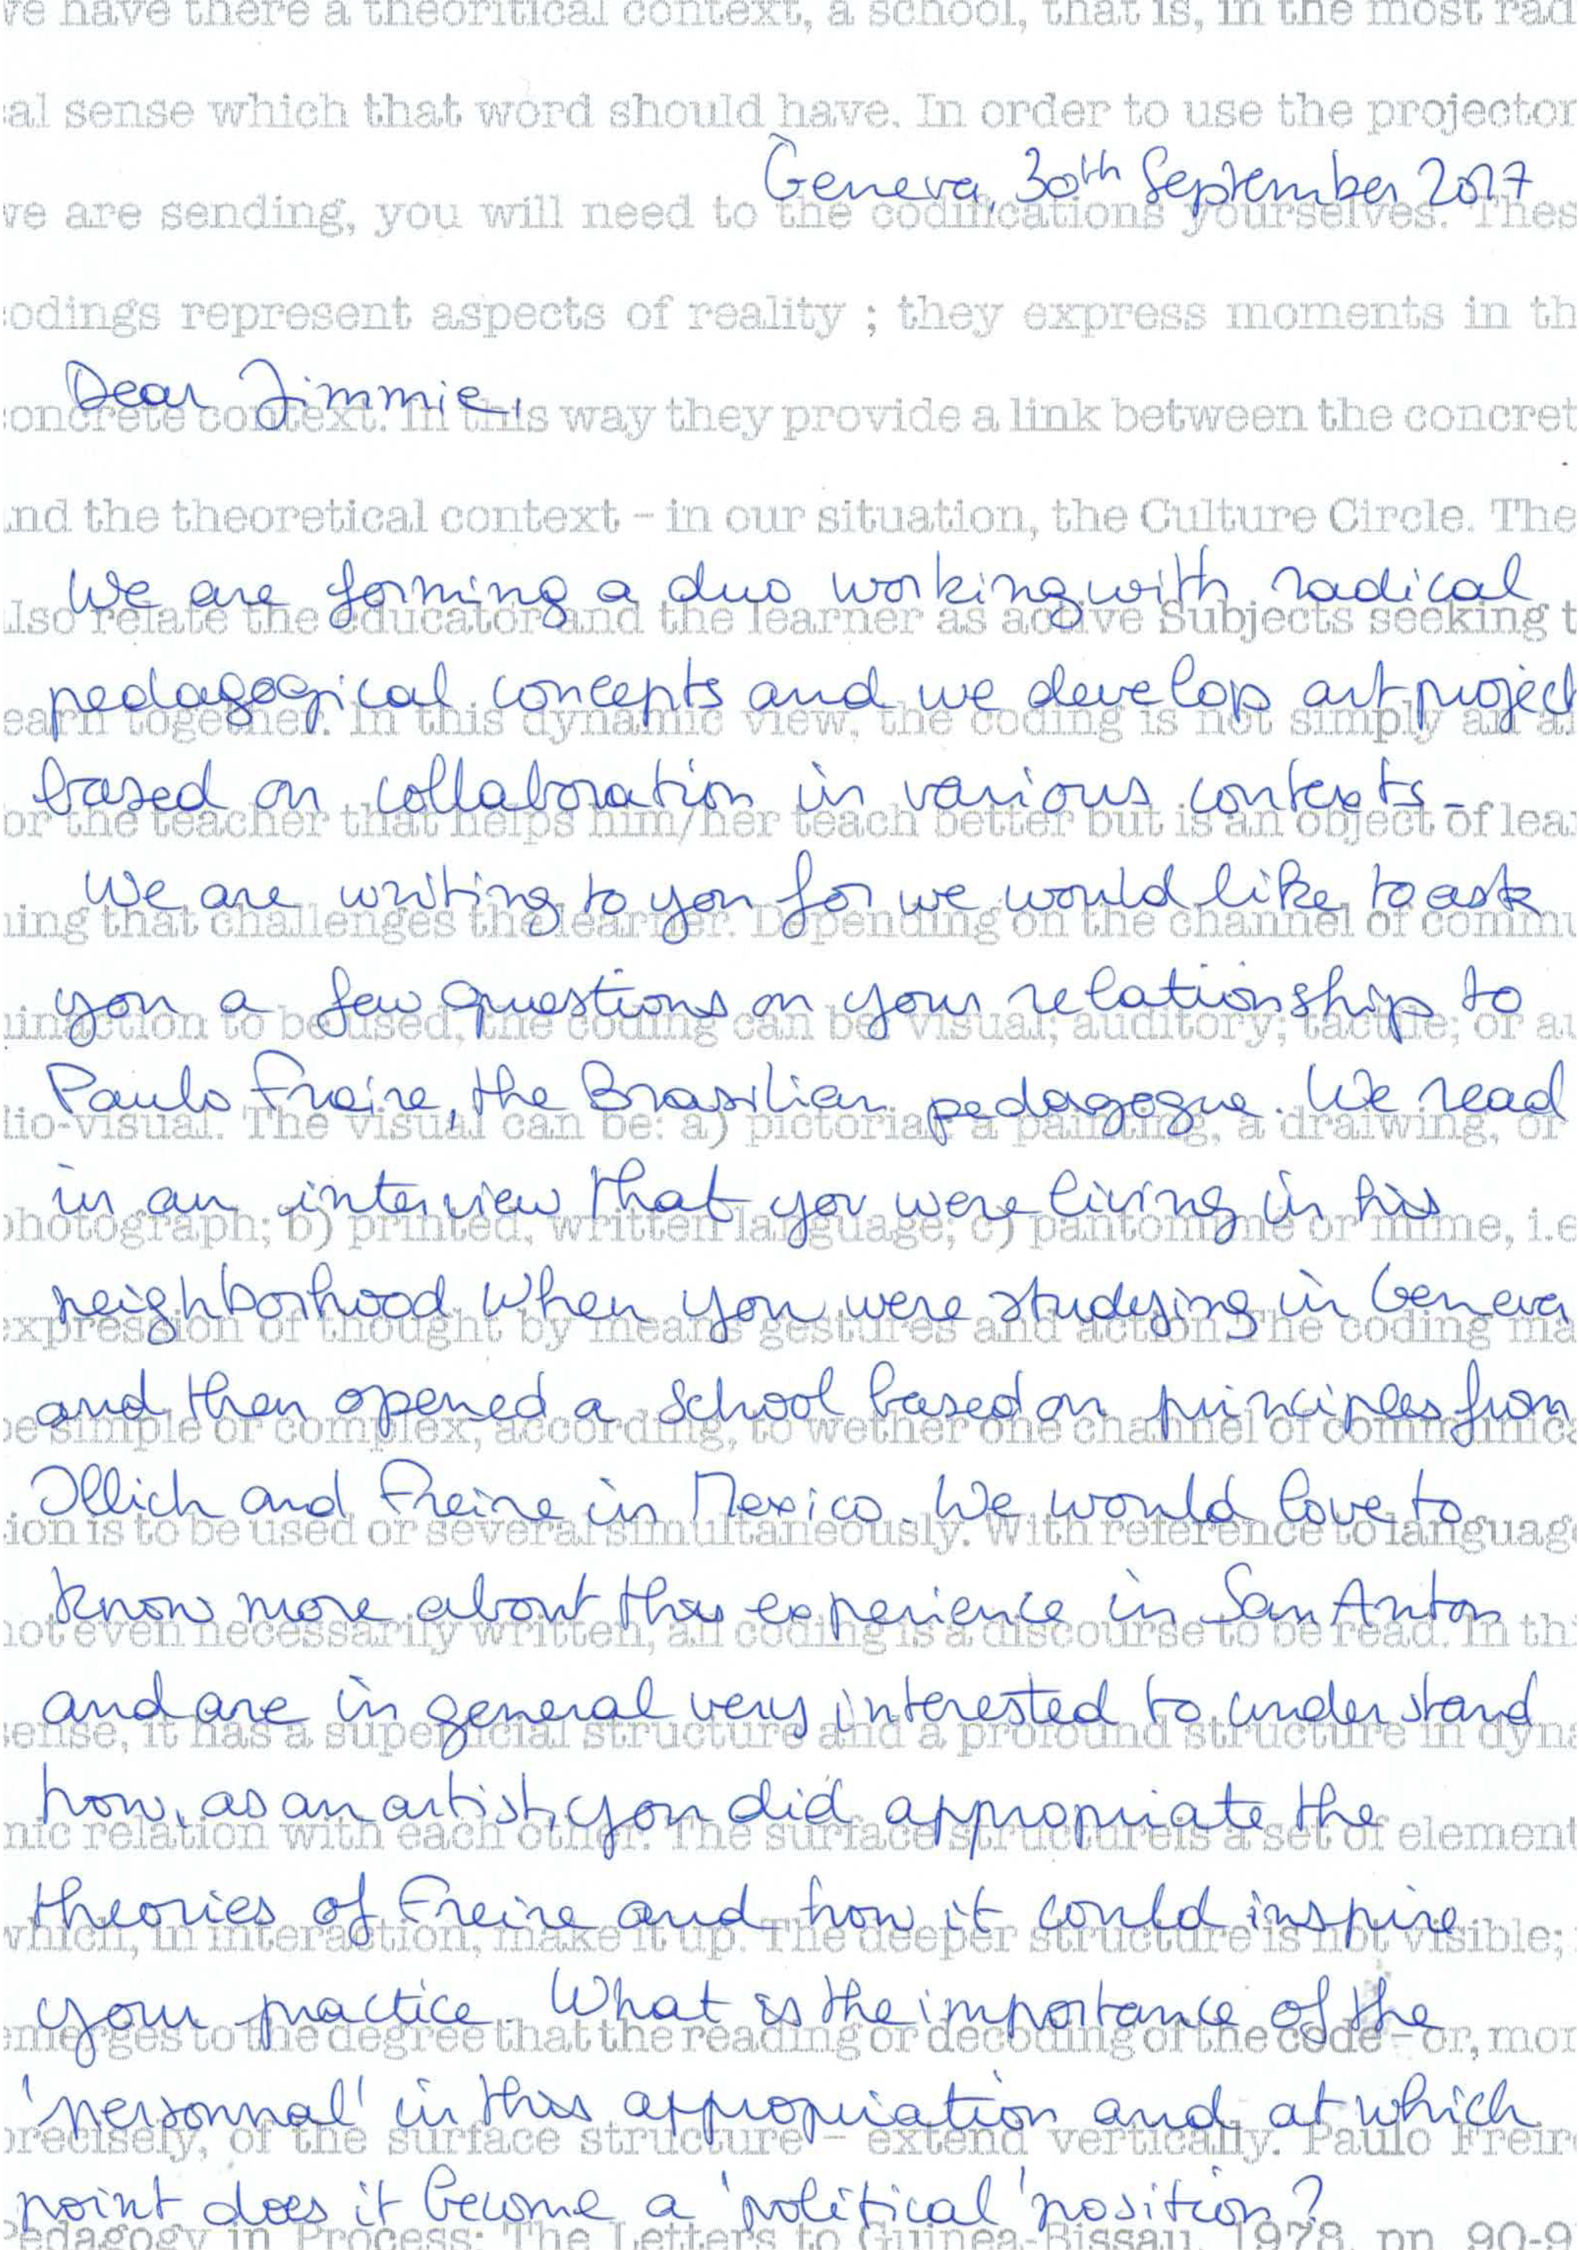 ve have there a theoritical context, a school, that is, in the most rad
al sense which that word should have. In order to use the projector
Geneva, 30th September 2017
ve are sending, you will need to the codifications yourselves. Thes
odings represent aspects of reality ; they express moments in th
Dear Jimmie,
oncrete context. In this way they provide a link between the concret
nd the theoretical context – in our situation, the Culture Circle. The
We are forming a duo working with radical
lso relate the educator and the learner as active Subjects seeking t
pedagogical concepts and we develop art project
earn together. In this dynamic view, the coding is not simply an a
based on collaboration in various contexts.
or the teacher that helps him/her teach better but is an object of lear
We are writing to you for we would like to ask
ning that challenges the learner. Depending on the channel of commu
you a few questions on your relationship to
nication to be used, the coding can be visual; auditory; tactile; or au
Paulo Freire, the Brasilian pedagogue. We read
dio-visual. The visual can be: a) pictorial: a painting, a drawing, or
in an interview that you were living in his
photograph; b) printed, written language; c) pantomime or mime, i.e
neighborhood when you were studying in Geneva
expression of thought by means gestures and action. The coding ma
and then opened a school based on principles from
be simple or complex, according, to wether one channel of communica
Illich and Freire in Mexico. We would love to
ion is to be used or several simultaneously. With reference to language
know more about this experience in San Anton
not even necessarily written, all coding is a discourse to be read. In thi
and are in general very interested to understand
sense, it has a superficial structure and a profound structure in dyna
how, as an artist, you did appropriate the
mic relation with each other. The surface structure is a set of element
theories of Freire and how it could inspire
which, in interaction, make it up. The deeper structure is not visible;
your practice. What is the importance of the
emerges to the degree that the reading or decoding of the code – or, mor
'personnal' in this appropriation and at which
precisely, of the surface structure – extend vertically. Paulo Freir
point does it become a 'political' position?
Pedagogy in Process: The Letters to Guinea-Bissau, 1978, pp. 90-9